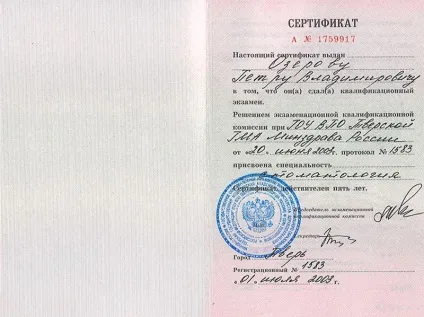 СЕРТИФИКАТ
А № 1759917
Настоящий сертификат выдан
Озерову
Петру Владимировичу
в том, что он(а) сдал(а) квалификационный
экзамен.
Решением экзаменационной квалификационной
комиссии при ГОУ ВПО Тверской
ГМА Минздрава России
от «20» июня 2003г. протокол № 1583
присвоена специальность
стоматология
Сертификат действителен пять лет.
Председатель экзаменационной
квалификационной комиссии
Секретарь
Город Тверь
Регистрационный № 1583
«01» июля 2003.